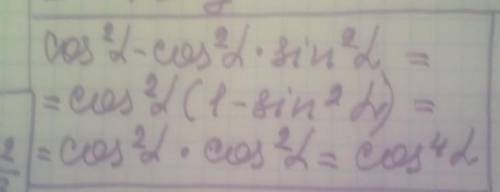 cos²α - cos²α · sin²α =
= cos²α (1 - sin²α) =
= cos²α · cos²α = cos⁴α
2